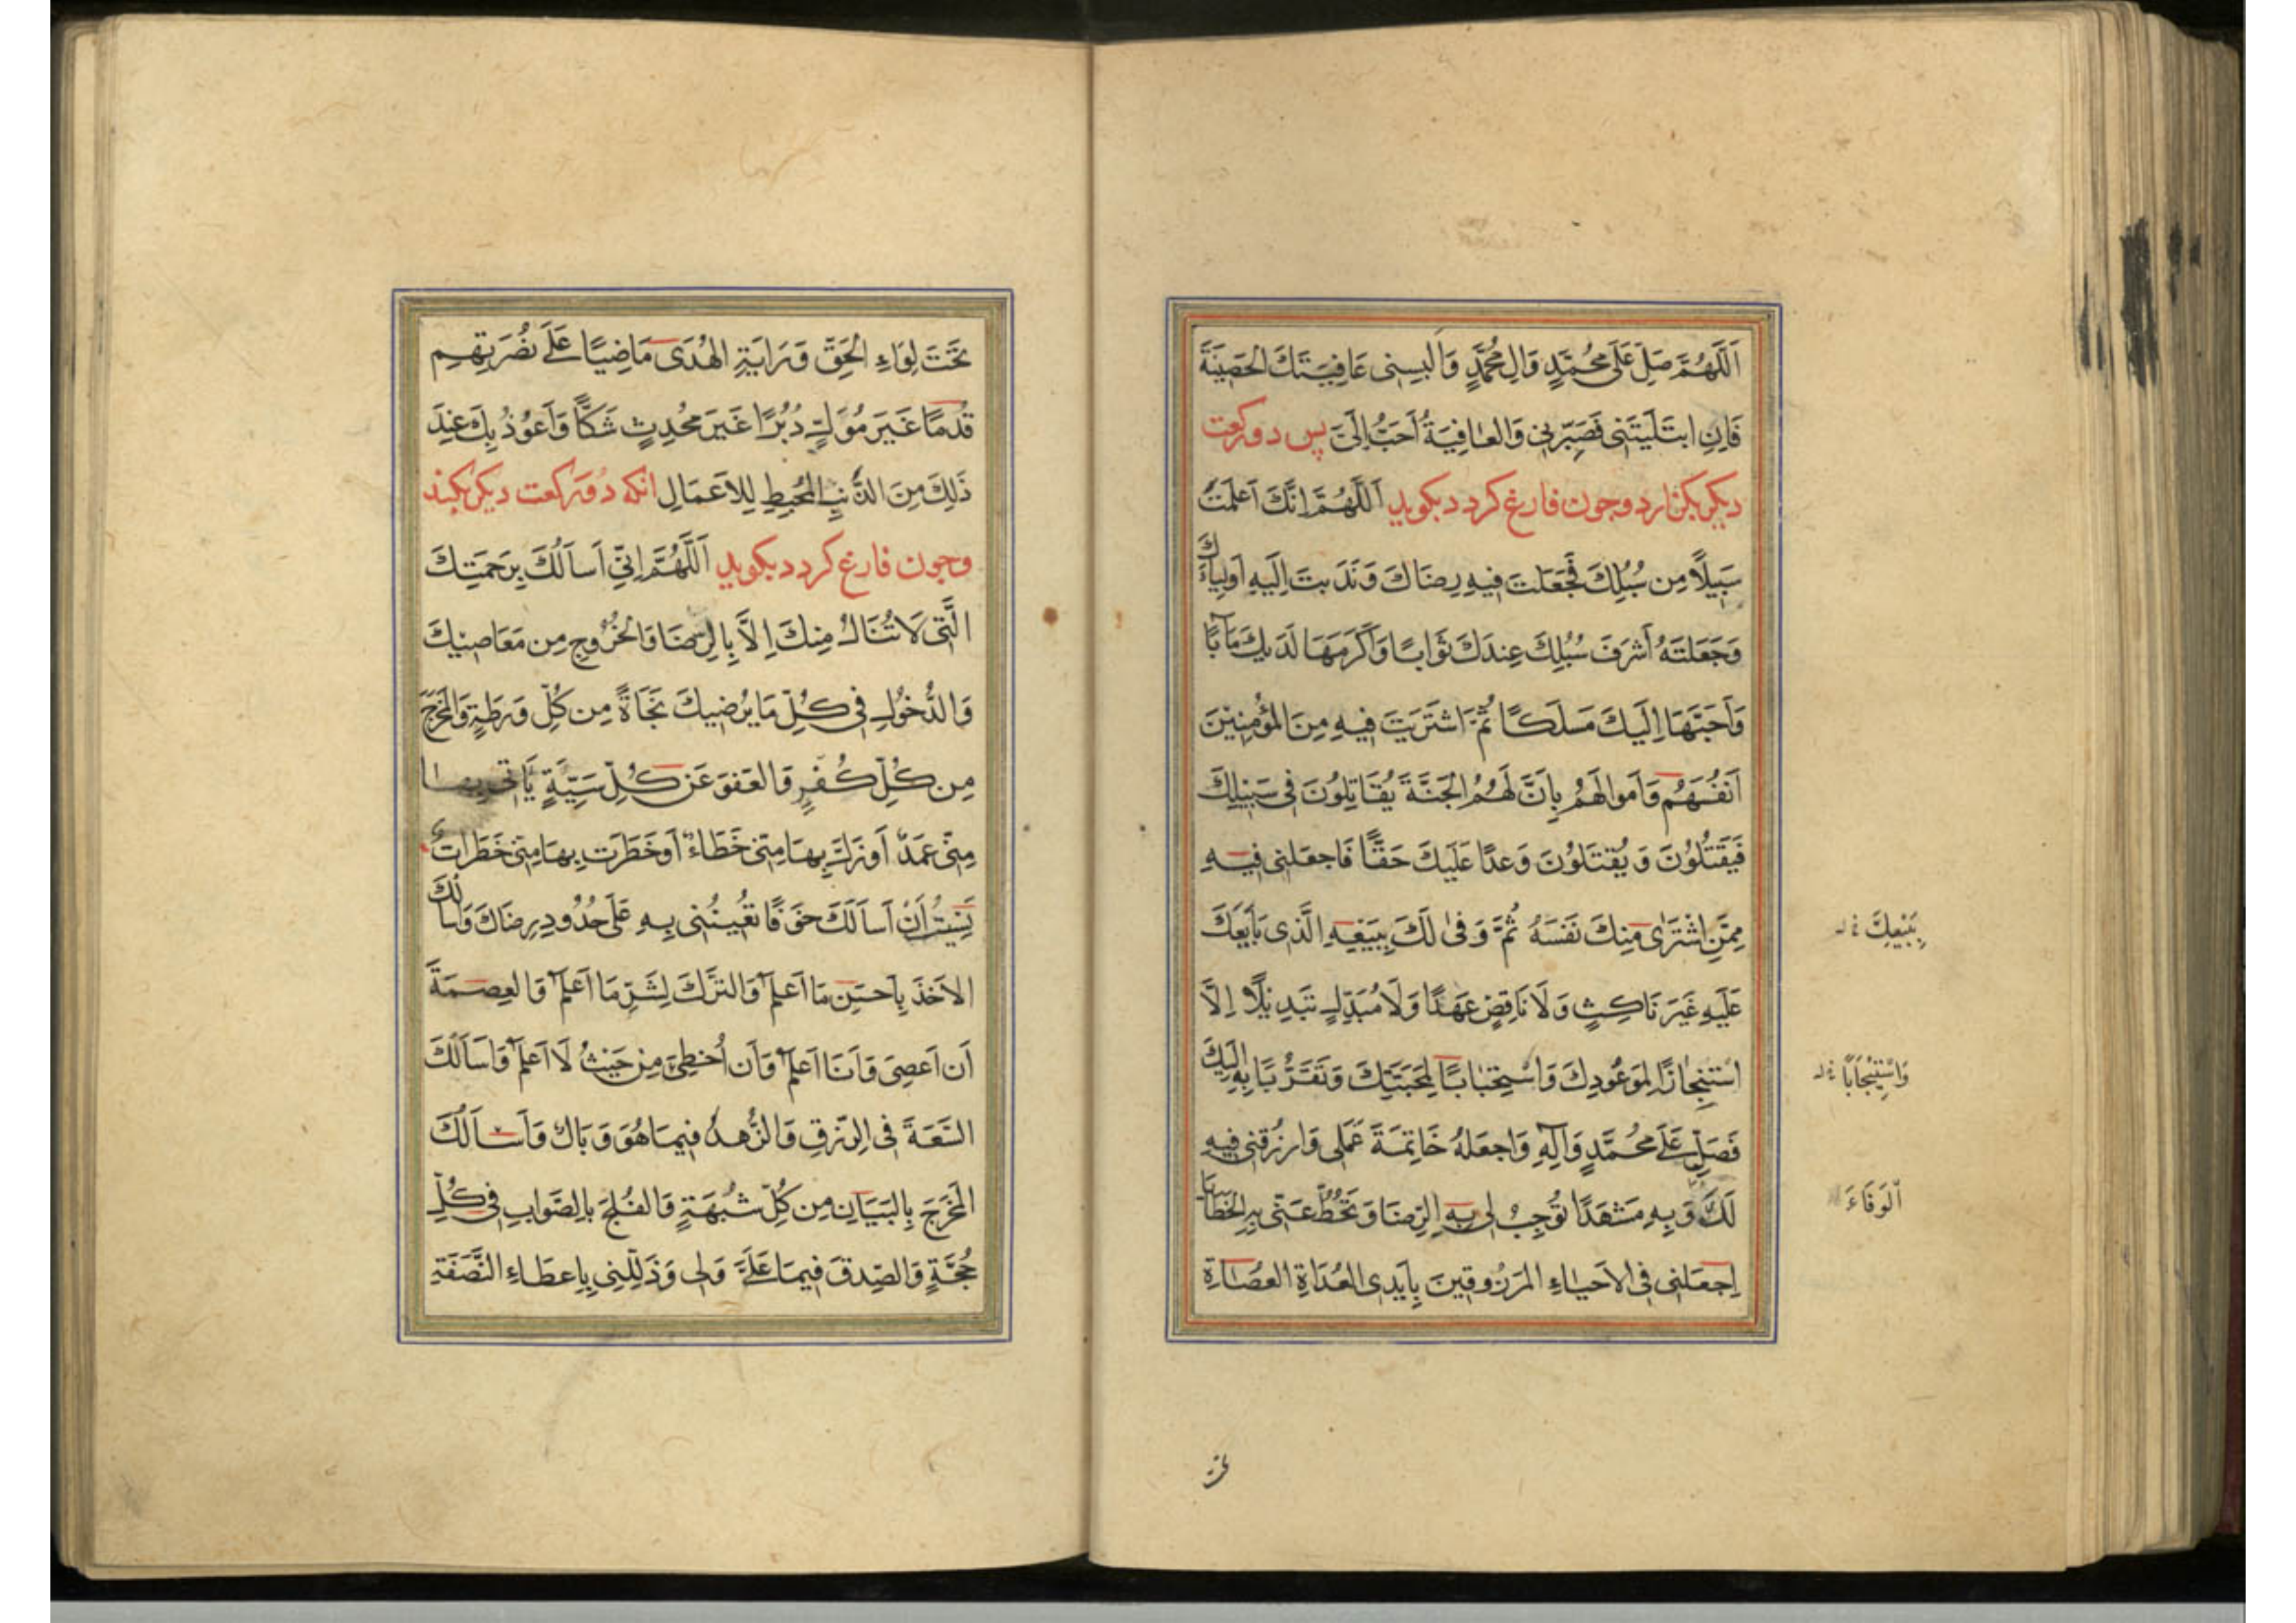 اَللّٰهُمَّ صَلِّ عَلٰى مُحَمَّدٍ وَالِ مُحَمَّدٍ وَاَلبِسنِى عَافِيَتَكَ الحَصِينَةَ
فَاِنِ ابتَلَيتَنِى فَصَبِّرنِى وَالعَافِيَةُ اَحَبُّ اِلَىَّ پس دو ركعت
ديكر بكزارد وجون فارغ كردد بكويد اَللّٰهُمَّ اِنَّكَ اَعلَمتَ
سَبِيلًا مِن سُبُلِكَ فَجَعَلتَ فِيهِ رِضَاكَ وَنَدَبتَ اِلَيهِ اَولِيَاءَكَ
وَجَعَلتَهُ اَشرَفَ سُبُلِكَ عِندَكَ ثَوَابًا وَاَكرَمَهَا لَدَيكَ مَآبًا
وَاَحَبَّهَا اِلَيكَ مَسلَكًا ثُمَّ اشتَرَيتَ فِيهِ مِنَ المُؤمِنِينَ
اَنفُسَهُم وَاَموالَهُم بِاَنَّ لَهُمُ الجَنَّةَ يُقَاتِلُونَ فِى سَبِيلِكَ
فَيَقتُلُونَ وَيُقتَلُونَ وَعدًا عَلَيكَ حَقًّا فَاجعَلنِى فِيهِ
مِمَّنِ اشتَرٰى مِنكَ نَفسَهُ ثُمَّ وَفٰى لَكَ بِبَيعِهِ الَّذِى بَايَعَكَ
عَلَيهِ غَيرَ نَاكِثٍ وَلَا نَاقِضٍ عَهدًا وَلَا مُبَدِّلٍ تَبدِيلًا اِلَّا
استِنجَازًا لِمَوعُودِكَ وَاستِحبَابًا لِمَحَبَّتِكَ وَتَقَرُّبًا بِهِ اِلَيكَ
فَصَلِّ عَلٰى مُحَمَّدٍ وَآلِهِ وَاجعَلهُ خَاتِمَةَ عَمَلِى وَارزُقنِى فِيهِ
لَكَ وَبِهِ مَشهَدًا تُوجِبُ لِى بِهِ الرِّضَا وَتَحُطُّ عَنِّى بِهِ الخَطَايَا
اِجعَلنِى فِى الاَحيَاءِ المَرزُوقِينَ بِاَيدِى العُدَاةِ العُصَاةِ
بِبَيْعِكَ
وَاسْتِيْجَابًا
اَلوَفَاءَ
تحت
تَحتَ لِوَاءِ الحَقِّ وَرَايَةِ الهُدَى مَاضِيًا عَلٰى نُصرَتِهِم
قُدمًا غَيرَ مُوَلٍّ دُبُرًا غَيرَ مُحدِثٍ شَكًّا وَاَعُوذُ بِكَ عِندَ
ذٰلِكَ مِنَ الذَّنبِ المُحبِطِ لِلاَعمَالِ انكه دو ركعت ديكر بكند
وجون فارغ كردد بكويد اَللّٰهُمَّ اِنِّى اَسأَلُكَ بِرَحمَتِكَ
الَّتِى لَا تُنَالُ مِنكَ اِلَّا بِالرِّضَا وَالخُرُوجِ مِن مَعَاصِيكَ
وَالدُّخُولِ فِى كُلِّ مَا يُرضِيكَ نَجَاةً مِن كُلِّ وَرطَةٍ وَالمَخرَجَ
مِن كُلِّ كُفرٍ وَالعَفوَ عَن كُلِّ سَيِّئَةٍ
مِنِّى عَمدٌ اَو زَلَّ بِهَا مِنِّى خَطَاءٌ اَو خَطَرَت بِهَا مِنِّى خَطَرَاتُ
نَسِيتُ اَنْ اَسأَلَكَ خَوفًا تُعِينُنِى بِهِ عَلٰى حُدُودِ رِضَاكَ وَاَسأَلُكَ
الاَخذَ بِاَحسَنِ مَا اَعلَمُ وَالتَّركَ لِشَرِّ مَا اَعلَمُ وَالعِصمَةَ
اَن اَعصِىَ وَاَنَا اَعلَمُ وَاَن اُخطِىءَ مِن حَيثُ لَا اَعلَمُ وَاَسأَلُكَ
السَّعَةَ فِى الرِّزقِ وَالزُّهدَ فِيمَا هُوَ وَبَالٌ وَاَسأَلُكَ
المَخرَجَ بِالبَيَانِ مِن كُلِّ شُبهَةٍ وَالفُلجَ بِالصَّوَابِ فِى كُلِّ
حُجَّةٍ وَالصِّدقَ فِيمَا عَلَىَّ وَلِى وَذَلِّلنِى بِاِعطَاءِ النَّصَفَةِ